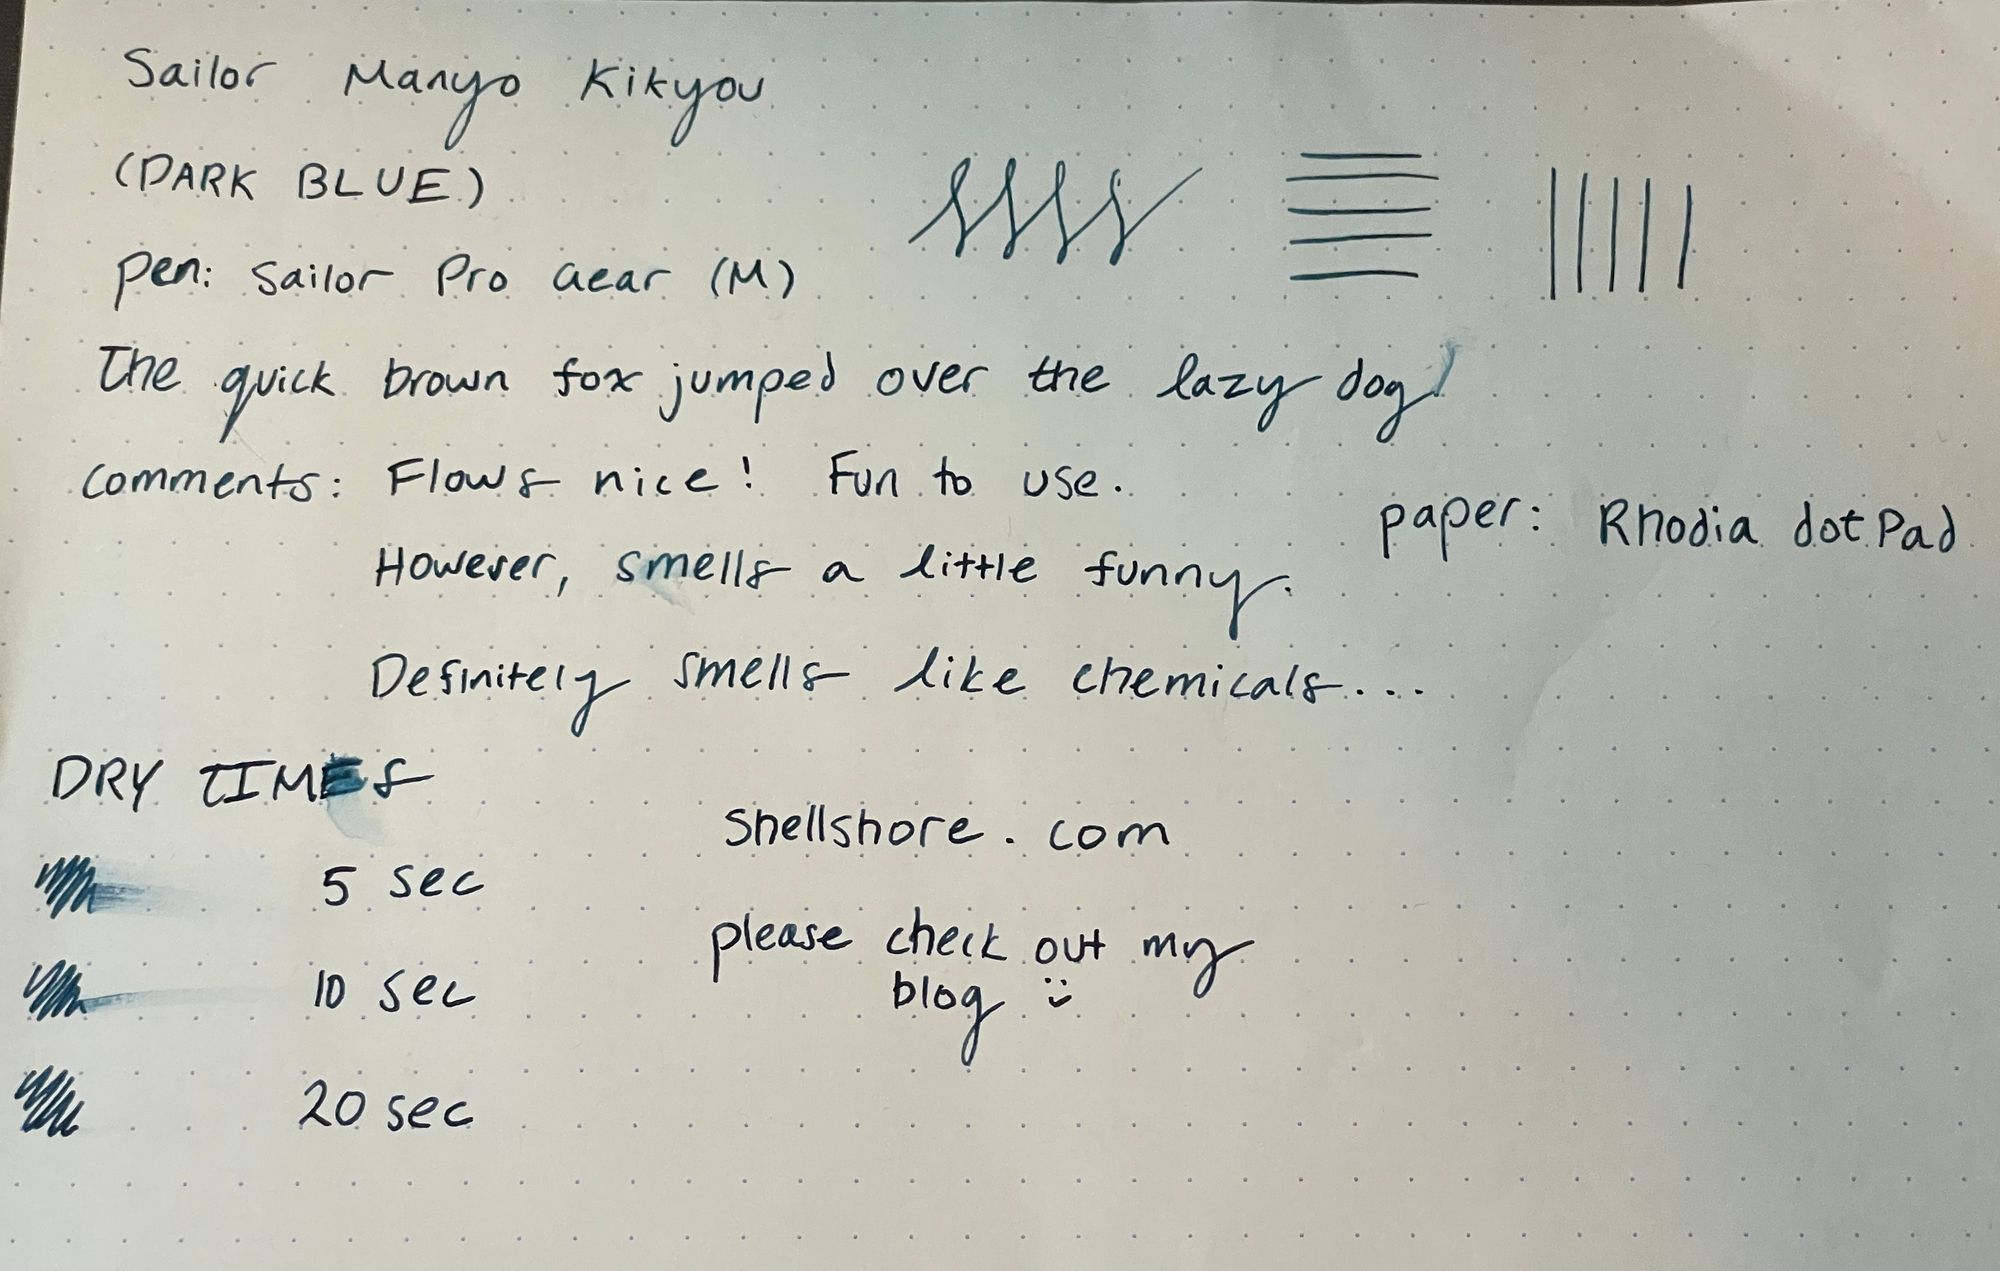 Sailor Manyo Kikyou
(DARK BLUE)
pen: Sailor Pro Gear (M)
The quick brown fox jumped over the lazy dog!
comments: Flows nice! Fun to use.
paper: Rhodia dotPad
However, smells a little funny.
Definitely smells like chemicals...
DRY TIMES
5 sec
10 sec
20 sec
shellshore.com
please check out my
blog :)